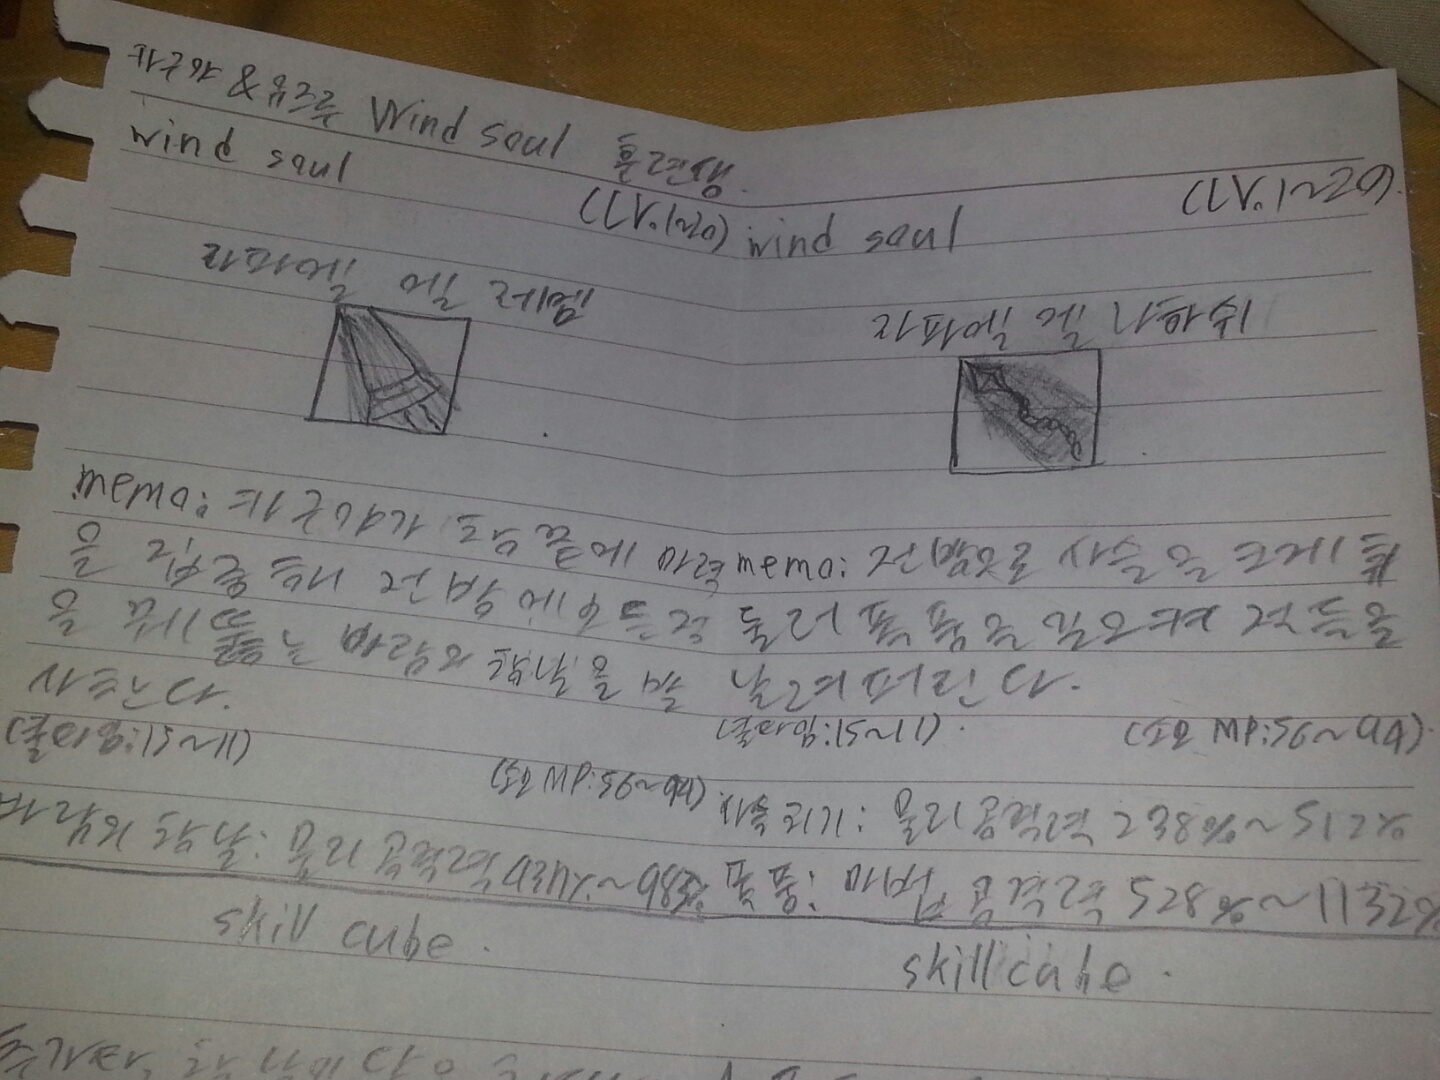 카구야 & 유그루 Wind soul 훈련생.
wind soul
(LV.1~20)
라파엘 엘 레헴
memo: 카구야가 창 끝에 마력
을 집중해 전방에 모든 적
을 꿰뚫는 바람의 창날을 발
사한다.
(쿨타임:15~11)
(소모 MP:56~94)
바람의 창날: 물리 공격력 437%~983%
skill cube.
wind soul
(LV.1~20).
라파엘 엘 나하쉬
memo: 전방으로 사슬을 크게 휘
둘러 폭풍을 일으켜 적들을
날려버린다.
(쿨타임:15~11).
(소모 MP:56~94).
사슬 리기: 물리 공격력 238%~512%
폭풍: 마법 공격력 528%~1132%
skill cube.